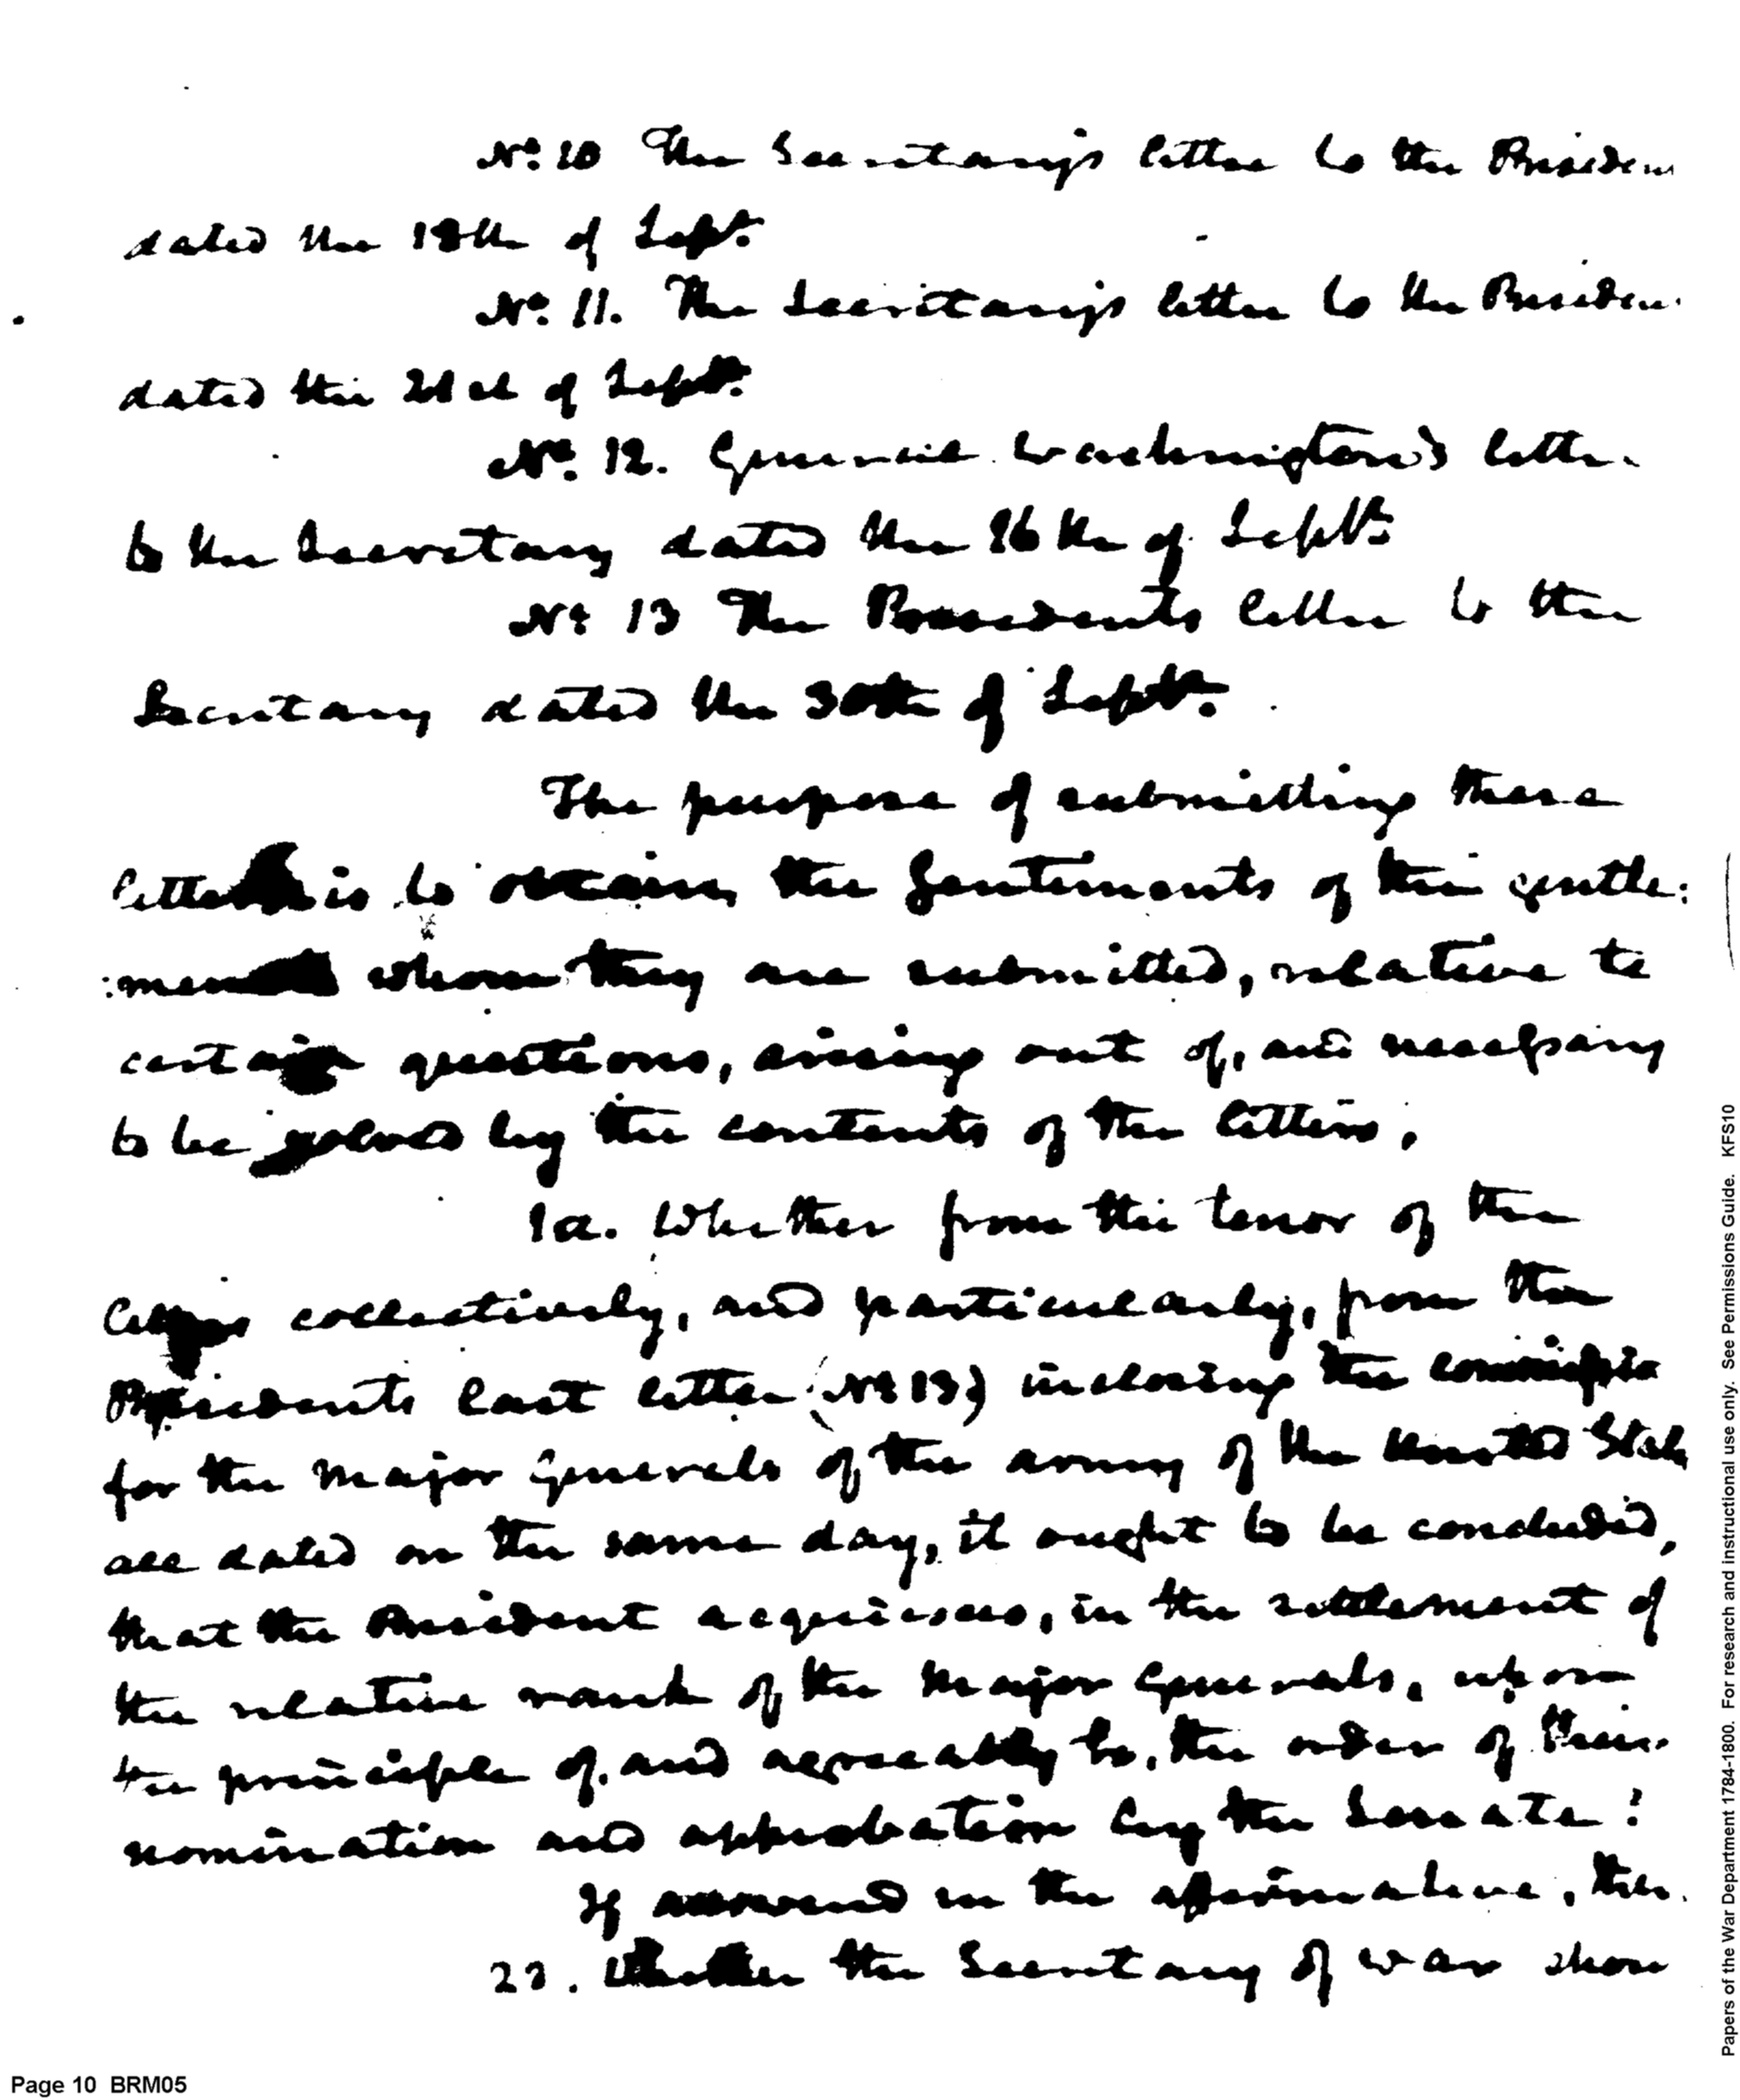 No. 10 The Secretary's letter to the Presiden
dated the 18th of Sept.
No. 11. The Secretary's letter to the Presiden
dated the 21st of Sept.
No. 12. General Washington's letter
to the Secretary dated the 26th of Septr.
No. 13 The Presidents letter to the
Secretary dated the 30th of Septr.
The purpose of submitting these
letters is to obtain the Sentiments of the gentle:
:men whom they are submitted, relative to
certain questions, arising out of, and necessary
to be solved by the contents of the letters.
1st. Whether from the tenor of the
letters collectively, and particularly, from the
Presidents last letter (No 13) inclosing the commissio
for the Major Generals of the army of the United State
all dated on the same day, it ought to be concluded,
that the President acquiesces, in the settlement of
the relative rank of the Major Generals, upon
the principle of, and agreeably to, the order of their
nomination and approbation by the Senate?
If answered in the affirmative, then
2d. Whether the Secretary of War shou
Papers of the War Department 1784-1800. For research and instructional use only. See Permissions Guide. KFS10
Page 10 BRM05